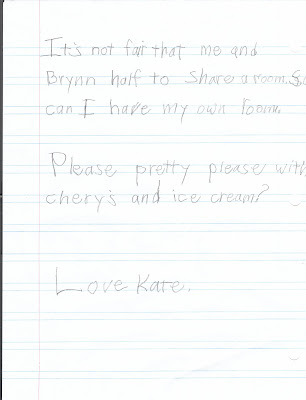 It's not fair that me and
Brynn half to share a room. So
can I have my own room.
Please pretty please with
chery's and ice cream?
Love Kate.